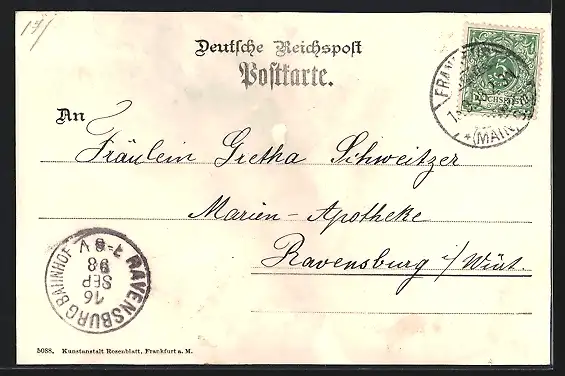 17/
Deutsche Reichspost
Postkarte.
5
REICHSPOST
FRANKFURT
* (MAIN)
An
Fräulein Gretha Schweitzer
Marien-Apotheke
Ravensburg i/Würt.
RAVENSBURG BAHNHOF
16
SEP
98
7-8 V
5088. Kunstanstalt Rosenblatt, Frankfurt a. M.